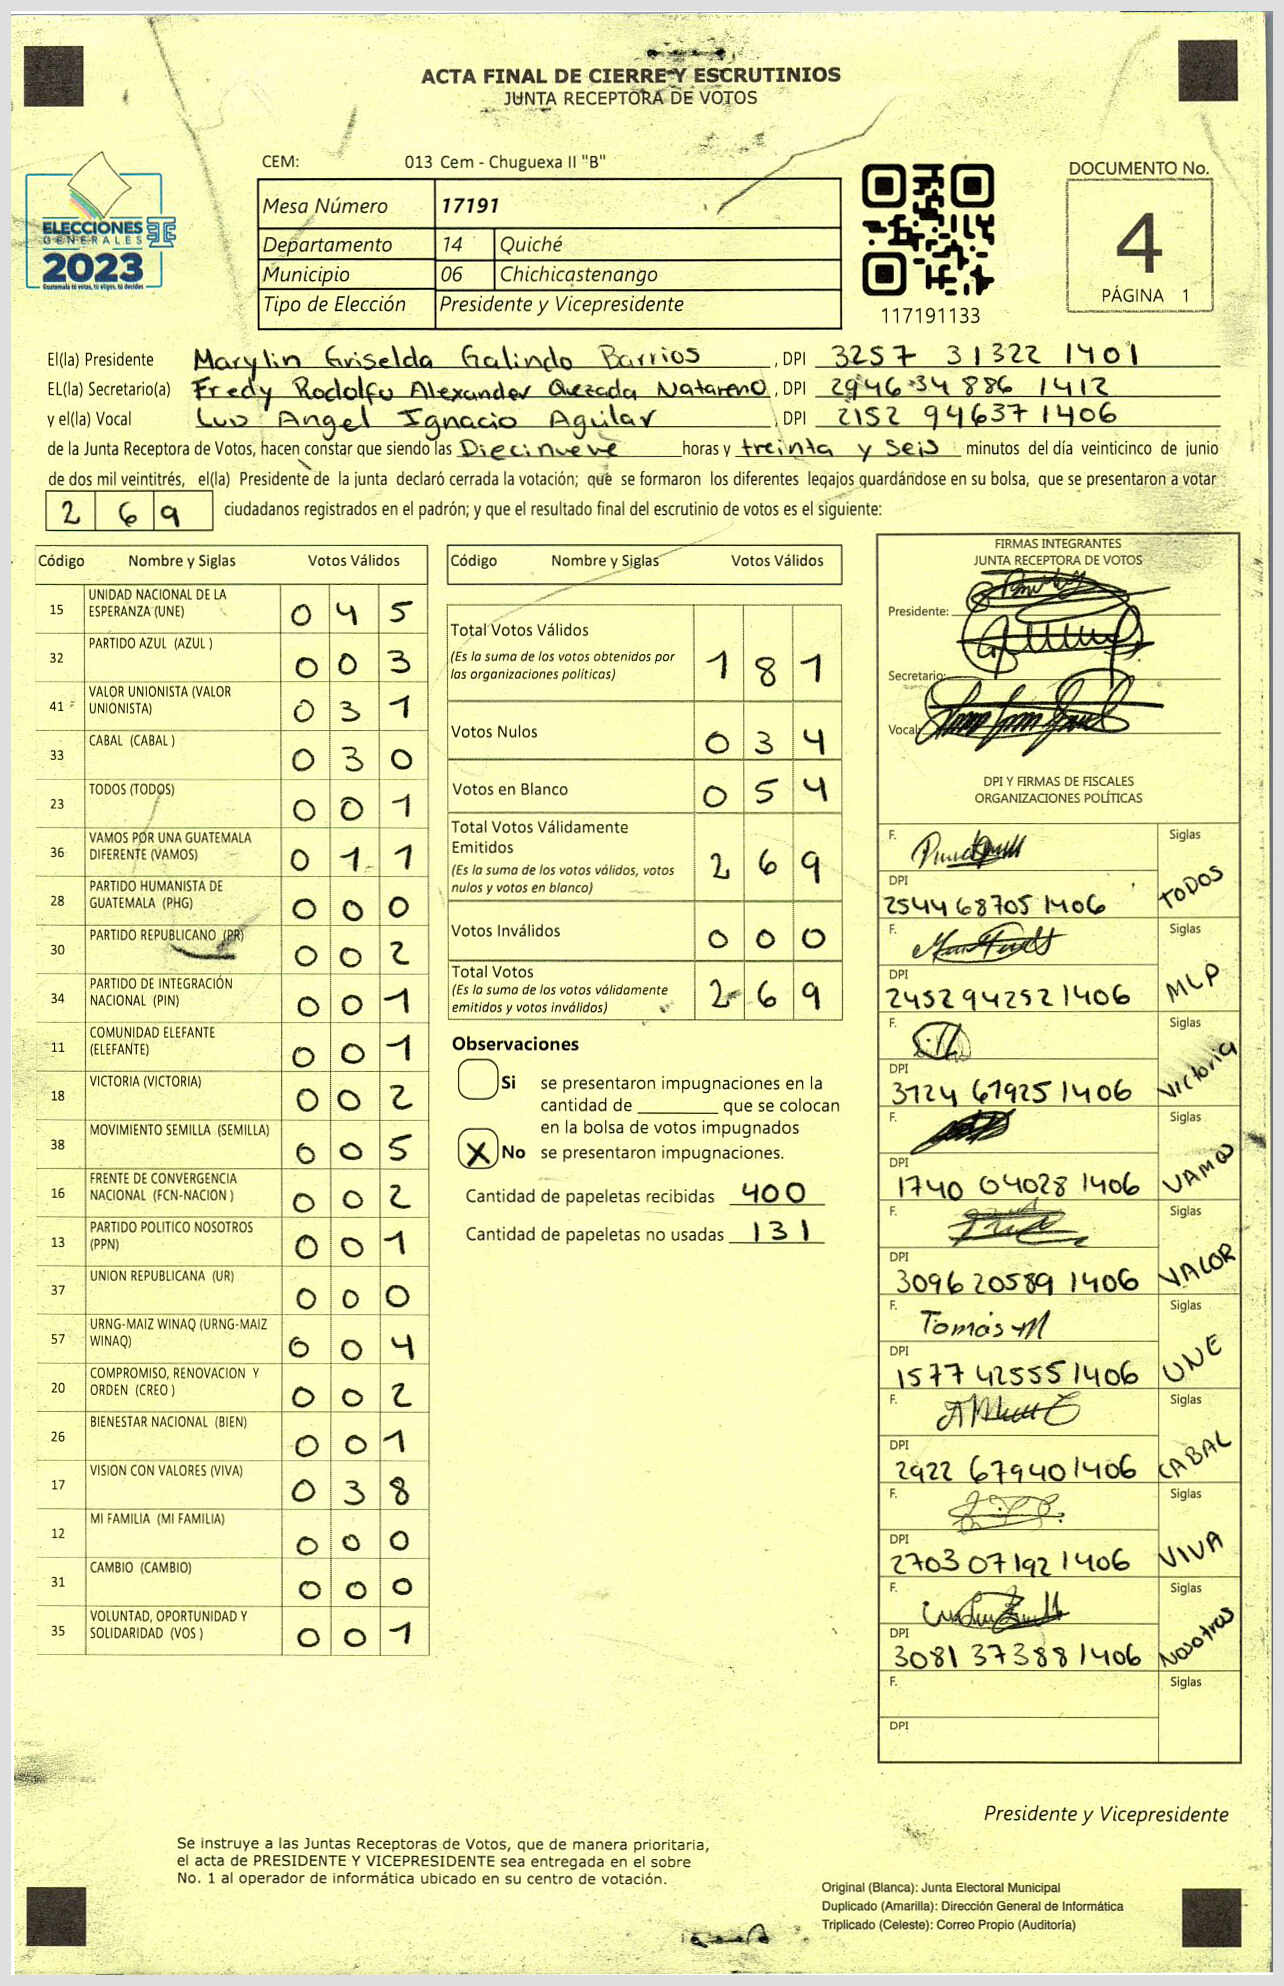 ACTA FINAL DE CIERRE Y ESCRUTINIOS
JUNTA RECEPTORA DE VOTOS
CEM: 013 Cem - Chuguexa II "B"
ELECCIONES
GENERALES
2023
Guatemala tú votas, tú eliges, tú decides
Mesa Número 17191
Departamento 14 Quiché
Municipio 06 Chichicastenango
Tipo de Elección Presidente y Vicepresidente
117191133
DOCUMENTO No.
4
PÁGINA 1
El(la) Presidente Marylin Griselda Galindo Barrios, DPI 3257 31322 1401
EL(la) Secretario(a) Fredy Rodolfo Alexander Quezada Natareno, DPI 2946 34886 1412
y el(la) Vocal Luis Angel Ignacio Aguilar, DPI 2152 94637 1406
de la Junta Receptora de Votos, hacen constar que siendo las Diecinueve horas y treinta y seis minutos del día veinticinco de junio
de dos mil veintitrés, el(la) Presidente de la junta declaró cerrada la votación; que se formaron los diferentes legajos guardándose en su bolsa, que se presentaron a votar
2 6 9 ciudadanos registrados en el padrón; y que el resultado final del escrutinio de votos es el siguiente:
Código Nombre y Siglas Votos Válidos
15 UNIDAD NACIONAL DE LA ESPERANZA (UNE) 0 4 5
32 PARTIDO AZUL (AZUL ) 0 0 3
41 VALOR UNIONISTA (VALOR UNIONISTA) 0 3 1
33 CABAL (CABAL ) 0 3 0
23 TODOS (TODOS) 0 0 1
36 VAMOS POR UNA GUATEMALA DIFERENTE (VAMOS) 0 1 1
28 PARTIDO HUMANISTA DE GUATEMALA (PHG) 0 0 0
30 PARTIDO REPUBLICANO (PR) 0 0 2
34 PARTIDO DE INTEGRACIÓN NACIONAL (PIN) 0 0 1
11 COMUNIDAD ELEFANTE (ELEFANTE) 0 0 1
18 VICTORIA (VICTORIA) 0 0 2
38 MOVIMIENTO SEMILLA (SEMILLA) 0 0 5
16 FRENTE DE CONVERGENCIA NACIONAL (FCN-NACION ) 0 0 2
13 PARTIDO POLITICO NOSOTROS (PPN) 0 0 1
37 UNION REPUBLICANA (UR) 0 0 0
57 URNG-MAIZ WINAQ (URNG-MAIZ WINAQ) 0 0 4
20 COMPROMISO, RENOVACION Y ORDEN (CREO ) 0 0 2
26 BIENESTAR NACIONAL (BIEN) 0 0 1
17 VISION CON VALORES (VIVA) 0 3 8
12 MI FAMILIA (MI FAMILIA) 0 0 0
31 CAMBIO (CAMBIO) 0 0 0
35 VOLUNTAD, OPORTUNIDAD Y SOLIDARIDAD (VOS ) 0 0 1
Código Nombre y Siglas Votos Válidos
Total Votos Válidos 1 8 1
(Es la suma de los votos obtenidos por
las organizaciones políticas)
Votos Nulos 0 3 4
Votos en Blanco 0 5 4
Total Votos Válidamente
Emitidos 2 6 9
(Es la suma de los votos válidos, votos
nulos y votos en blanco)
Votos Inválidos 0 0 0
Total Votos 2 6 9
(Es la suma de los votos válidamente
emitidos y votos inválidos)
Observaciones
Si se presentaron impugnaciones en la
cantidad de ________ que se colocan
en la bolsa de votos impugnados
X No se presentaron impugnaciones.
Cantidad de papeletas recibidas 400
Cantidad de papeletas no usadas 131
FIRMAS INTEGRANTES
JUNTA RECEPTORA DE VOTOS
Presidente:
Secretario:
Vocal:
DPI Y FIRMAS DE FISCALES
ORGANIZACIONES POLÍTICAS
F. Siglas
DPI TODOS
2544 68705 1406
F. Siglas
DPI MLP
2452 94252 1406
F. Siglas
DPI Victoria
3124 67925 1406
F. Siglas
DPI VAMOS
1740 04028 1406
F. Siglas
DPI VALOR
3096 20589 1406
F. Tomás M Siglas
DPI UNE
1577 42555 1406
F. Siglas
DPI CABAL
2922 67940 1406
F. Siglas
DPI VIVA
2703 07192 1406
F. Siglas
DPI Nosotros
3081 37388 1406
F. Siglas
DPI
Presidente y Vicepresidente
Se instruye a las Juntas Receptoras de Votos, que de manera prioritaria,
el acta de PRESIDENTE Y VICEPRESIDENTE sea entregada en el sobre
No. 1 al operador de informática ubicado en su centro de votación.
Original (Blanca): Junta Electoral Municipal
Duplicado (Amarilla): Dirección General de Informática
Triplicado (Celeste): Correo Propio (Auditoría)